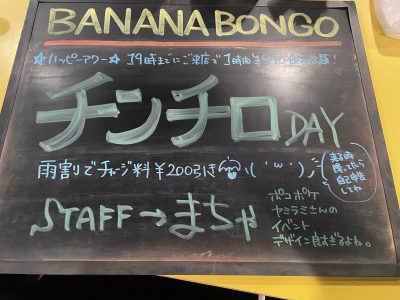 BANANA BONGO
☆ハッピーアワー☆ 19時までにご来店で1時間¥ 放題!
チンチロ DAY
雨割りでチャージ料¥200引き \('ω')/
自己申告
してね
STAFF→まちゃ
ポコポケ
ヤミラミさんの
イベント
デザイン良すぎるよね。